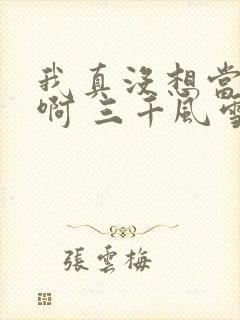 我真没想當
啊 三千風雪
張雲梅